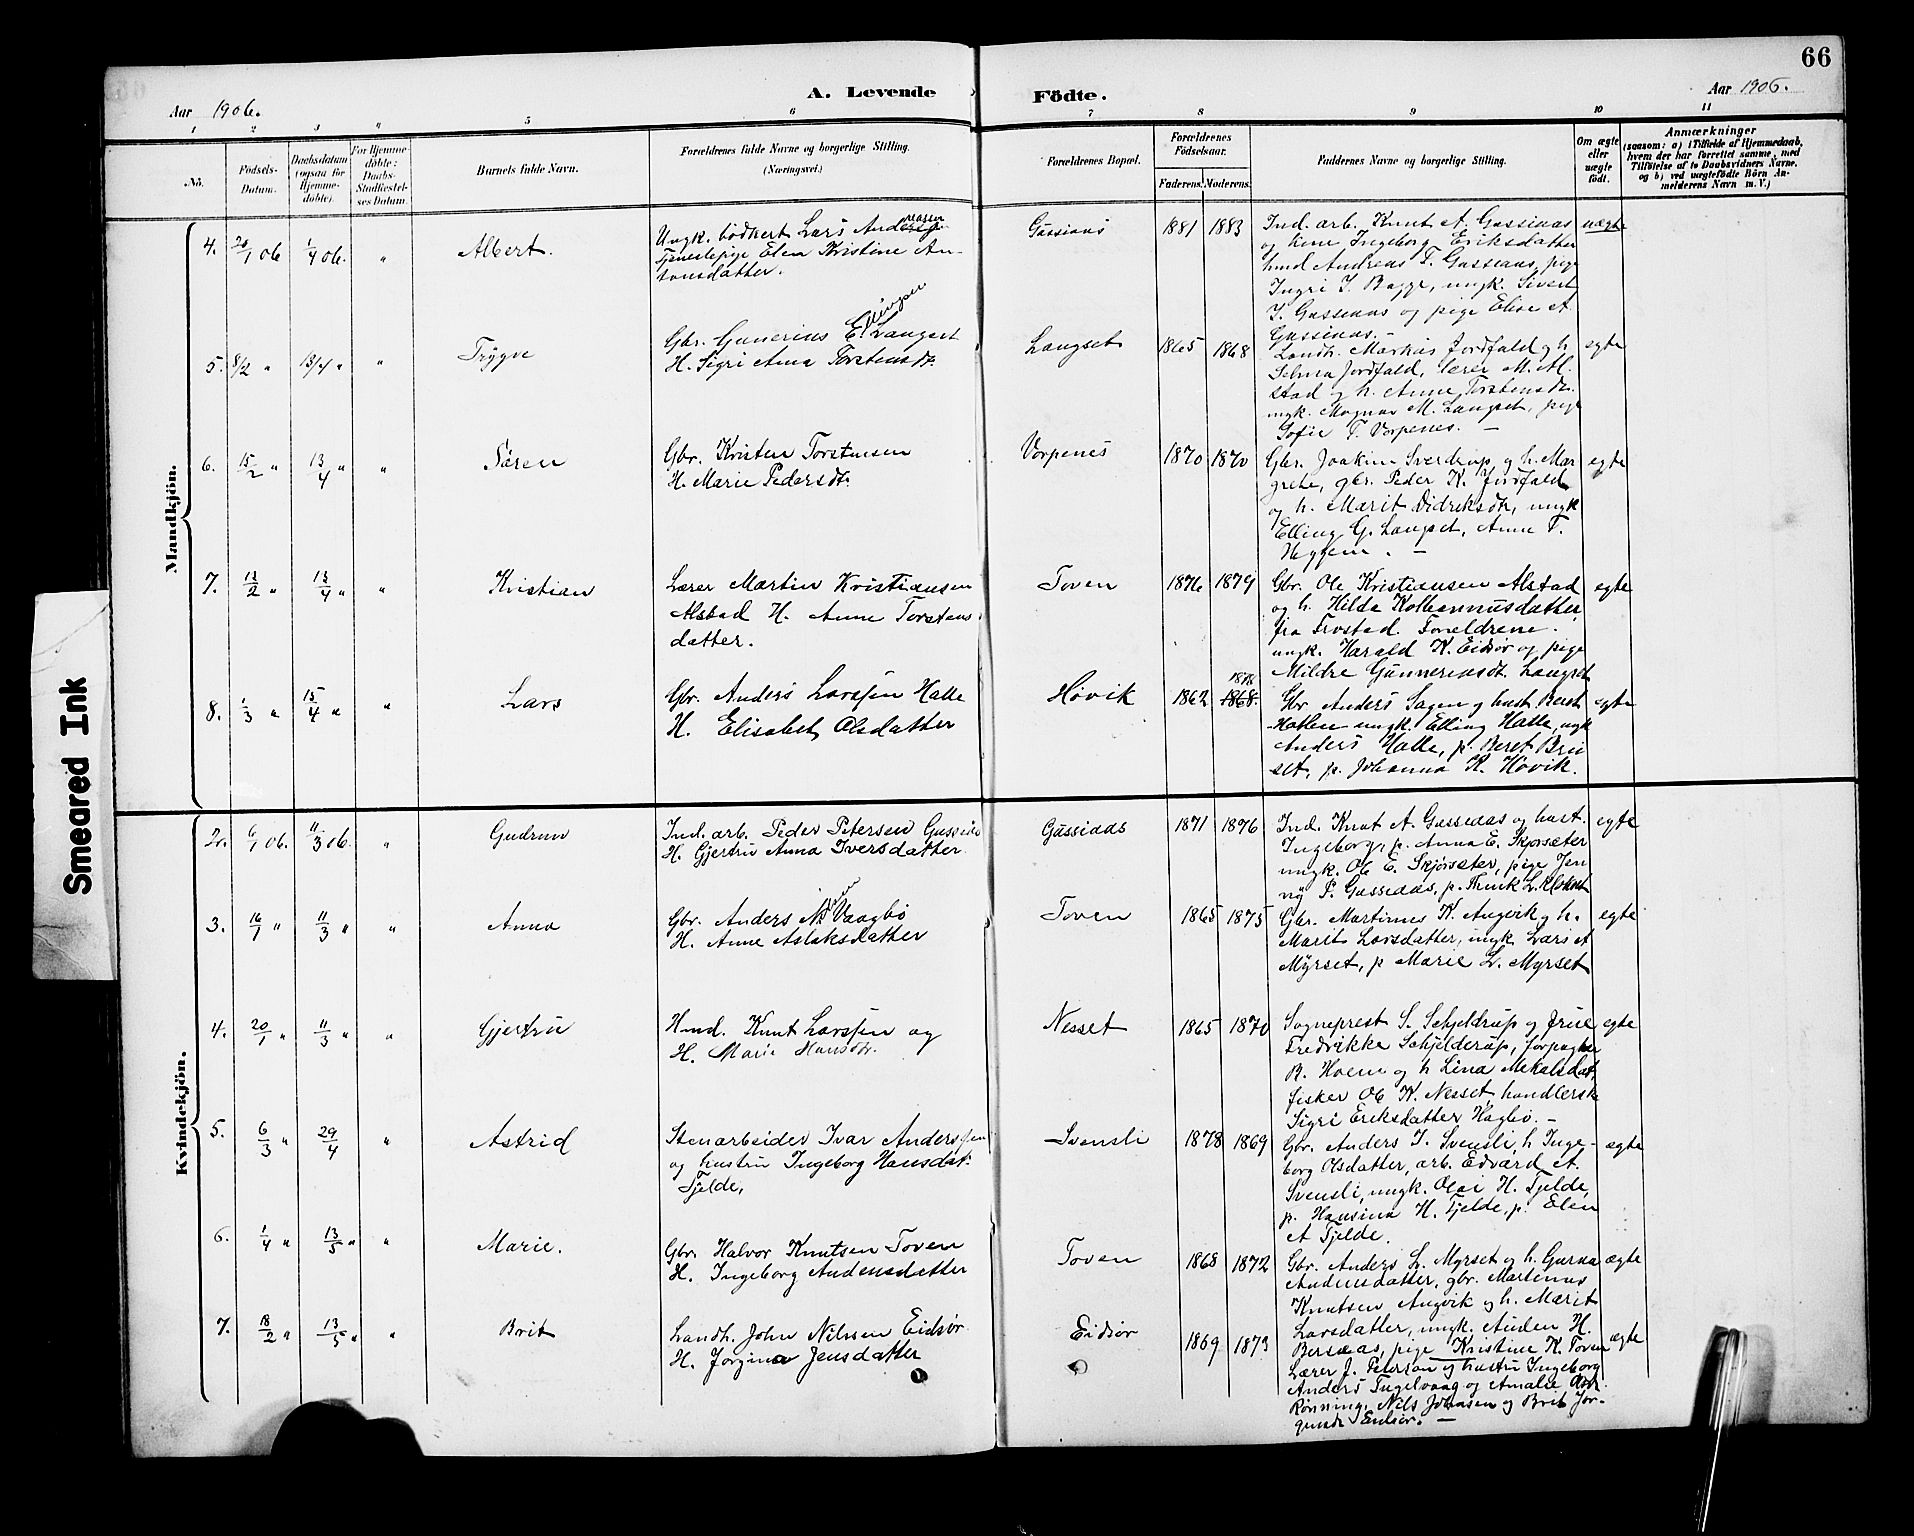 66
Aar 1906.
A. Levende
Födte.
Aar 1906.
1 2 3 " 5 6 7 8 9 10 11
No.
Födsels-Datum.
Daabsdatum (ogsaa for Hjemmedöbte).
For Hjemmedöbte: Daabs-Stadfæstelses Datum.
Barnets fulde Navn.
Forældrenes fulde Navne og borgerlige Stilling.
(Næringsvei.)
Forældrenes Bopæl.
Forældrenes Födselsaar.
Faderens. Moderens.
Faddernes Navne og borgerlige Stilling.
Om ægte eller uægte födt.
Anmærkninger
(saasom: a) i Tilfælde af Hjemmedaab, hvem der har forrettet samme, med Tilföielse af to Daabsvidners Navne, og b) ved uægtefödte Börn Anmelderens Navn m. V.)
Mandkjön.
4. 20/1 06 1/4 06. " Albert.
Ungk. bödkert Lars Andreasen
Tjenestepige Elen Kristine An-
tonsdatter.
Gussiaas 1881 1883
Ind. arb. Knut A. Gussiaas
og kone Ingeborg Eriksdatter
hmd Andreas T. Gussiaas, pige
Ingri I. Bagge, ungk. Sivert
I. Gussiaas og pige Elise A
Gussiaas.
uægte
5. 8/2 " 13/4 " " Trygve
Gbr. Gunerius Ellingsen Langset
H. Sigri Anna Torstensdr.
Langset 1865 1868
Landh. Markus Jordfald og h.
Selma Jordfald, lærer M. Al-
stad og h. Anne Torstensdr.
ungk. Magnar M. Langset, pige
Sofie T. Vorpenes. —
egte
6. 15/2 " 13/4 " " Sören
Gbr. Kristen Torstensen
H. Marie Pedersdtr.
Vorpenes 1870 1870
Gbr. Joakim Sverdrup og h. Mar
grete, gbr. Peder K. Jordfald
og h. Marit Didriksdtr, ungk
Elling G. Langset, Anne T.
Heggem. —
egte
7. 12/2 " 13/4 " " Kristian
Lærer Martin Kristiansen
Alstad H. Anne Torstens-
datter.
Toven 1876 1879
Gbr. Ole Kristiansen Alstad
og h. Hilda Kolbannusdatter
fra Frostad. Foreldrene.
ungk. Harald K. Eidsör og pige
Mildre Gunneriusdt. Langset
egte
8. 1/3 " 15/4 " " Lars
Gbr. Anders Larssen Halle
H. Elisabet Olsdatter
Hovik 1862 1868. 1878
Gbr Anders Sagen og hust. Beret
Hatlen ungk. Elling Halle, ungk
Anders Halle, p. Beret Brei
set, p. Johanna K. Hovik.
egte
Kvindekjön.
2. 6/1 06. 11/3 06. " Gudrun
Ind. arb. Peder Petersen Gussiås
H. Gjertru Anna Iversdatter
Gussiaas 1871 1876
Ind. Knut A. Gussiaas og hust.
Ingeborg, p. Anna E. Skjørsæter
ungk. Ole E. Skjørsæter, pige Jen
ny P. Gussiaas, p.
egte
3. 16/1 " 11/3 " " Anna
Gbr. Anders Vaagbø
H. Anne Aslaksdatter
Toven 1865 1875
Gbr. Martinus K. Angvik og h.
Marit Larsdatter, ungk. Lars A
Myrset, p Marie L. Myrset
egte
4. 20/1 " 11/3 " " Gjertru
Hmd. Knut Larssen og
H. Marie Hansdtr.
Nesset 1865 1870
Sogneprest S. Schjeldrup og frue
Fredrikke Schjelderup, forpagter
B. Hoem og h Lina Mikalsdat,
fisker Ole K. Nesset, handlerske
Sigri Eriksdatter Hagbø. —
egte
5. 6/3 " 29/4 " Astrid
Stenarbeider Ivar Anderssen
og hustru Ingeborg Hansdat.
Tjelde,
Svensli 1878 1869
Gbr. Anders I. Svensli, h Inge-
borg Olsdatter, arb. Edvard A.
Svensli, ungk. Olai H. Tjelde,
p. Hansina H. Tjelde, p. Elen
A Tjelde.
ægte
6. 1/4 " 13/5 " " Marie.
Gbr. Halvor Knutsen Toven
H. Ingeborg Andersdatter
Toven 1868 1872
Gbr. Anders L. Myrset og h. Guruna
Andersdatter, gbr. Martinus
Knutsen Angvik og h. Marit
Larsdatter, ungk. Auden H.
Bersaas, pige Kristine K. Toven
ægte
7. 18/2 " 13/5 " " Brit
Landh. John Nilssen Eidsör
H. Jorgina Jensdatter
Eidsör 1869 1873
Lærer J. Peterson og hustru Ingeborg
Anders Tugelvaag og Amalie
Rønning, Nils Johnsen og Brit Jor-
Eidsör. —
ægte
Smeared Ink